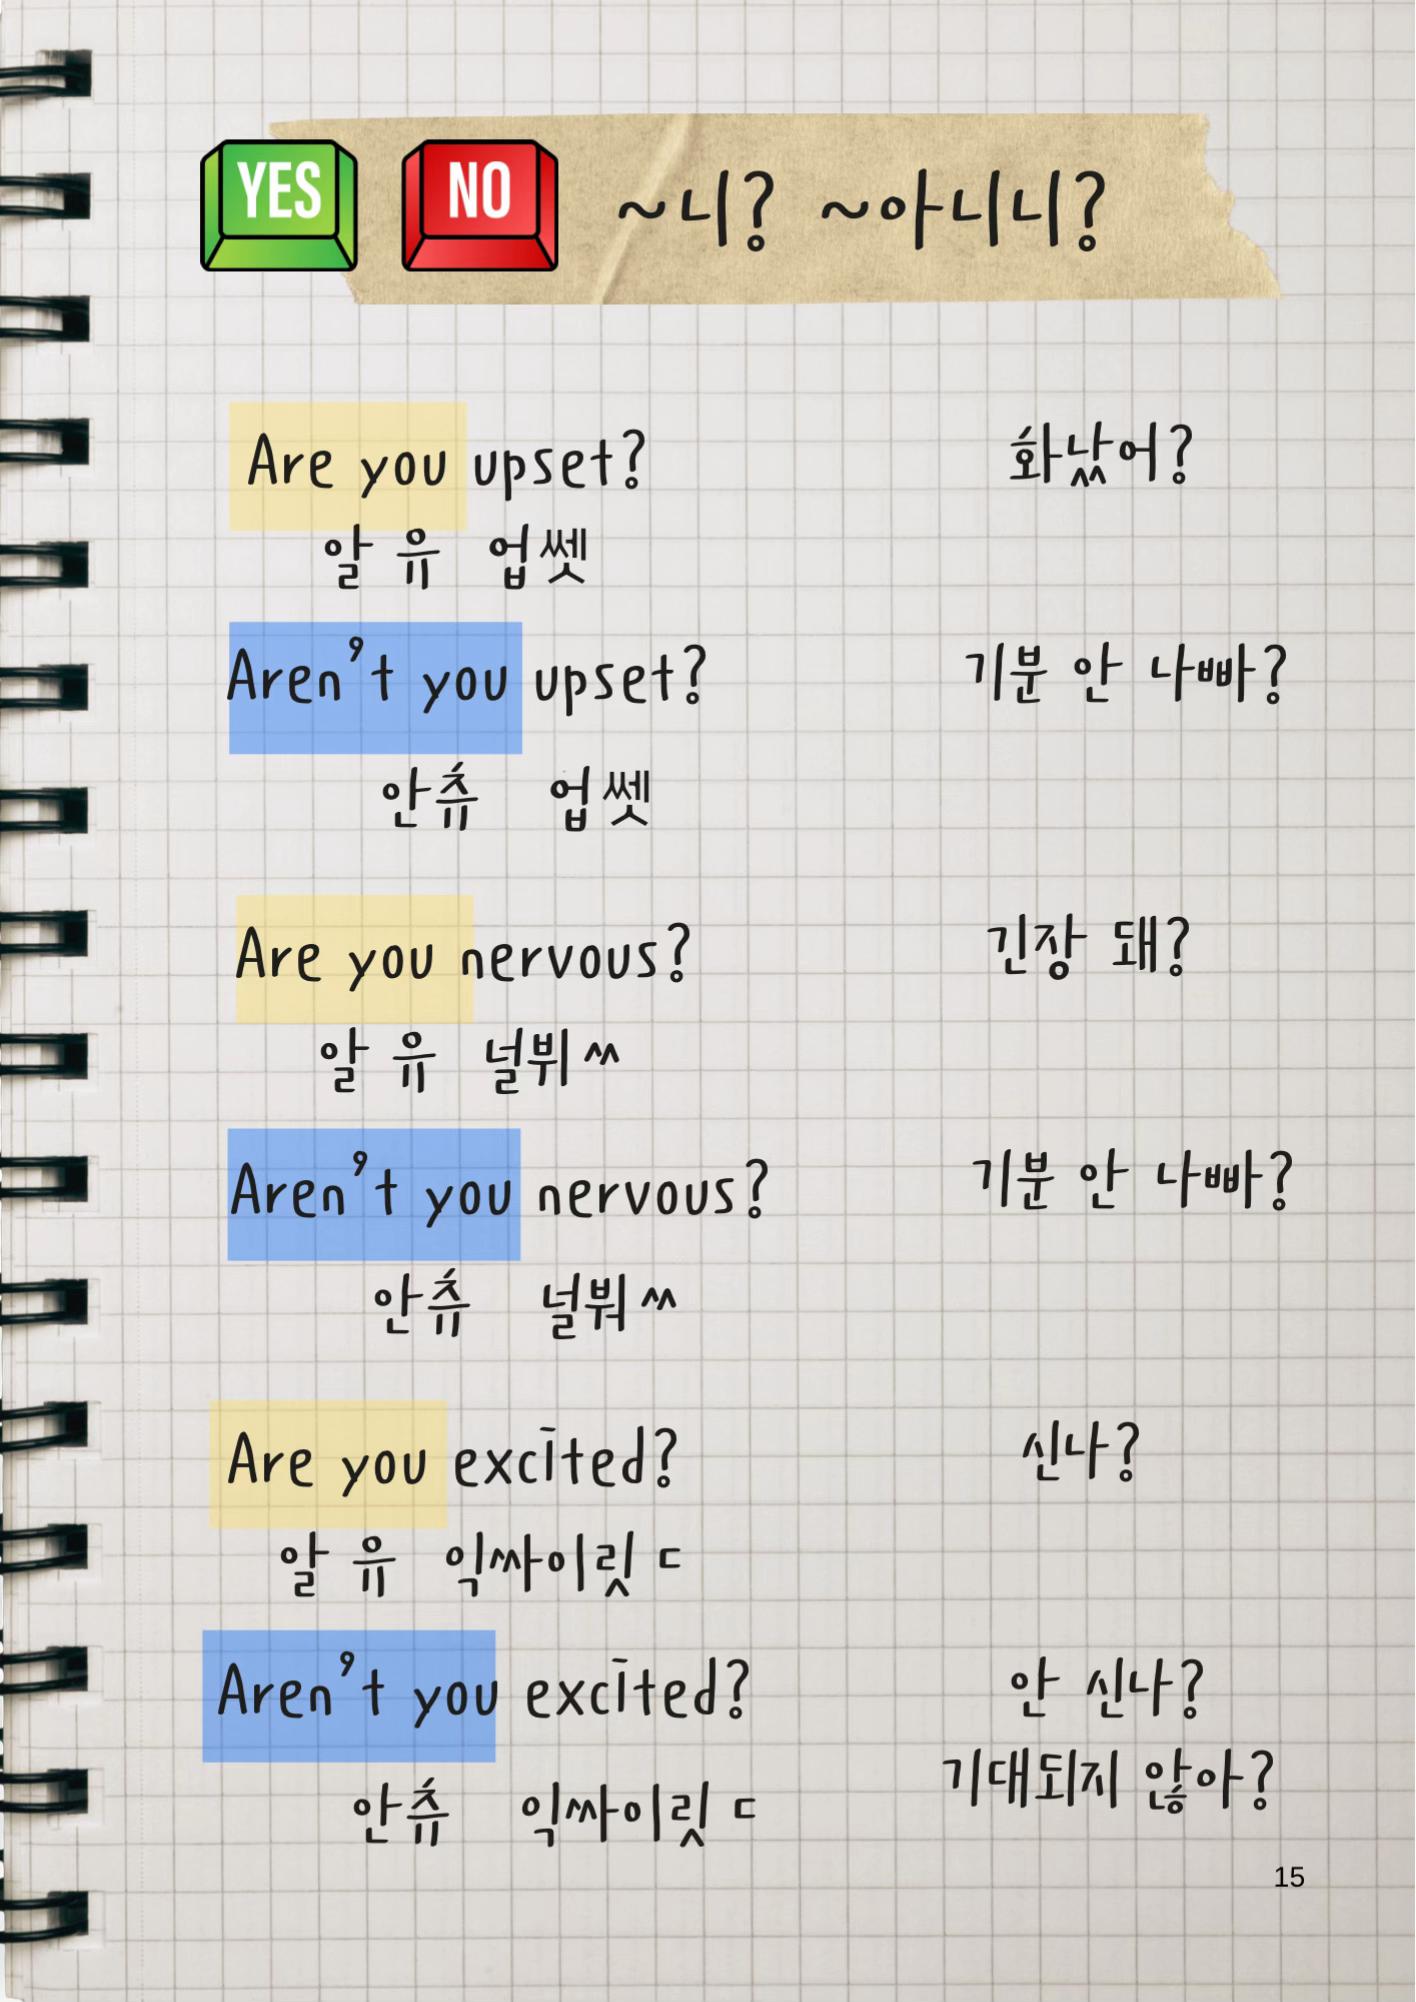 YES NO ~니? ~아니니?
Are you upset? 화났어?
알 유 업쎗
Aren't you upset? 기분 안 나빠?
안츄 업쎗
Are you nervous? 긴장 돼?
알 유 널뷔ㅆ
Aren't you nervous? 기분 안 나빠?
안츄 널붜ㅆ
Are you excīted? 신나?
알 유 익싸이릿ㄷ
Aren't you excīted? 안 신나?
기대되지 않아?
안츄 익싸이릿ㄷ
15